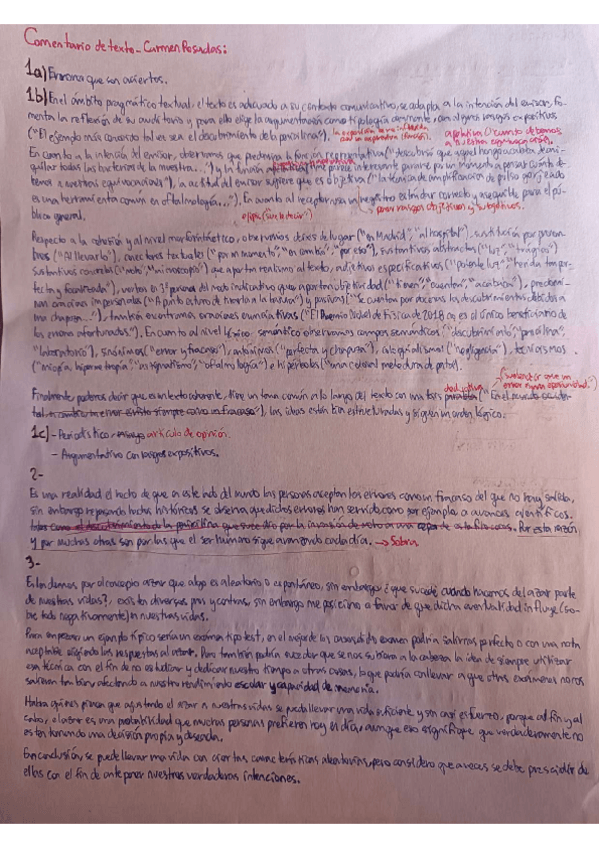 Comentario de texto - Carmen Posadas:
1a) Errores que son aciertos.
1b) En el ámbito pragmático textual, el texto es adecuado a su contexto comunicativo, se adapta a la intención del emisor, fo-
menta la reflexión de su auditorio y para ello elige la argumentación como tipología con algunos rasgos expositivos,
("El ejemplo más conocido tal vez sea el descubrimiento de la penicilina").
apelativa ("cuánto debemos
a nuestras equivocaciones").
En cuanto a la intención del emisor, observamos que predomina la función representativa ("descubrió que aquel hongo acababa, te ani-
quilar todas las bacterias de la muestra...") y la función
temos a nuestras equivocaciones"), la actitud del emisor sugiere que es objetiva ("la técnica de amplificación de pulso gorjeado
es una herramienta común en oftalmología..."). En cuanto al receptor usa un registro estándar correcto y asequible para el pú-
blico general.
pero con rasgos objetivos y subjetivos.
Respecto a la cohesión y al nivel morfosintáctico, observamos deixis de lugar ("en Madrid", "al hospital"), sustitución por pronom-
bres ("Al llevarlo"), conectores textuales ("por un momento", "en cambio", "por eso"), sustantivos abstractos ("luz", "trágicos")
sustantivos concretos ("moho", "Mai", "microscopio") que aportan realismo al texto, adjetivos especificativos ("potente luz",
y focalizada"), verbos en 3ª persona del modo indicativo que aportan objetividad ("tienen", "cuentan", "acababa"), predomi-
nan oraciones impersonales ("A punto estuvo de tirarlo a la basura") y pasivas ("Se cuentan por docenas los descubrimientos debidos a
una chapuza..."), también encontramos oraciones enunciativas ("El Premio Nobel de Física de 2018 no es el único beneficiario de
los errores afortunados"). En cuanto al nivel léxico semántico observamos campos semánticos ("descubrimiento", "penicilina",
"laboratorio"), sinónimos ("error y fracaso"), antónimos ("perfecta y chapuza"), coloquialismos ("negligencia"), tecnicismos
("miopía, hipermetropía", "astigmatismo", "oftalmología") e hipérboles ("una colosal metedura de pata").
Finalmente podemos decir que es un texto coherente, tiene un tema común a lo largo del texto con una tesis
las ideas están bien estructuradas y siguen un orden lógico.
1c) - Periodístico - ensayo artículo de opinión.
- Argumentativo con rasgos expositivos.
2-
Es una realidad el hecho de que a este lado del mundo las personas aceptan los errores como un fracaso del que no hay salida,
sin embargo repasando hechos históricos se observa que dichos errores han servido como por ejemplo a avances científicos.
Por esta razón
y por muchas otras son por las que el ser humano sigue avanzando cada día. → Sobra.
3-
Entendemos por el concepto azar que algo es aleatorio o espontáneo, sin embargo ¿qué sucede cuando hacemos del azar parte
de nuestras vidas?, existen diversos pros y contras, sin embargo me posiciono a favor de que dicha eventualidad influye (so-
bre todo negativamente) en nuestras vidas.
Para empezar un ejemplo típico sería un examen tipo test, en el mejor de los casos dicho examen podría salirnos perfecto o con una nota
aceptable eligiendo las respuestas al azar. Pero también podría suceder que se nos subiera a la cabeza la idea de siempre utilizar
esa técnica con el fin de no estudiar y dedicar nuestro tiempo a otras cosas, lo que podría conllevar a que otros exámenes no nos
salieran tan bien, afectando a nuestro rendimiento escolar y capacidad de memoria.
Habrá quienes piensen que ajustando el azar a nuestras vidas se pueda llevar una vida suficiente y sin casi esfuerzo, porque al fin y al
cabo, el azar es una probabilidad que muchas personas prefieren hoy el día, aunque eso signifique que verdaderamente no
estén tomando una decisión propia y deseada.
En conclusión, se puede llevar una vida con ciertas características aleatorias, pero considero que a veces se debe prescindir de
ellas con el fin de anteponer nuestras verdaderas intenciones.